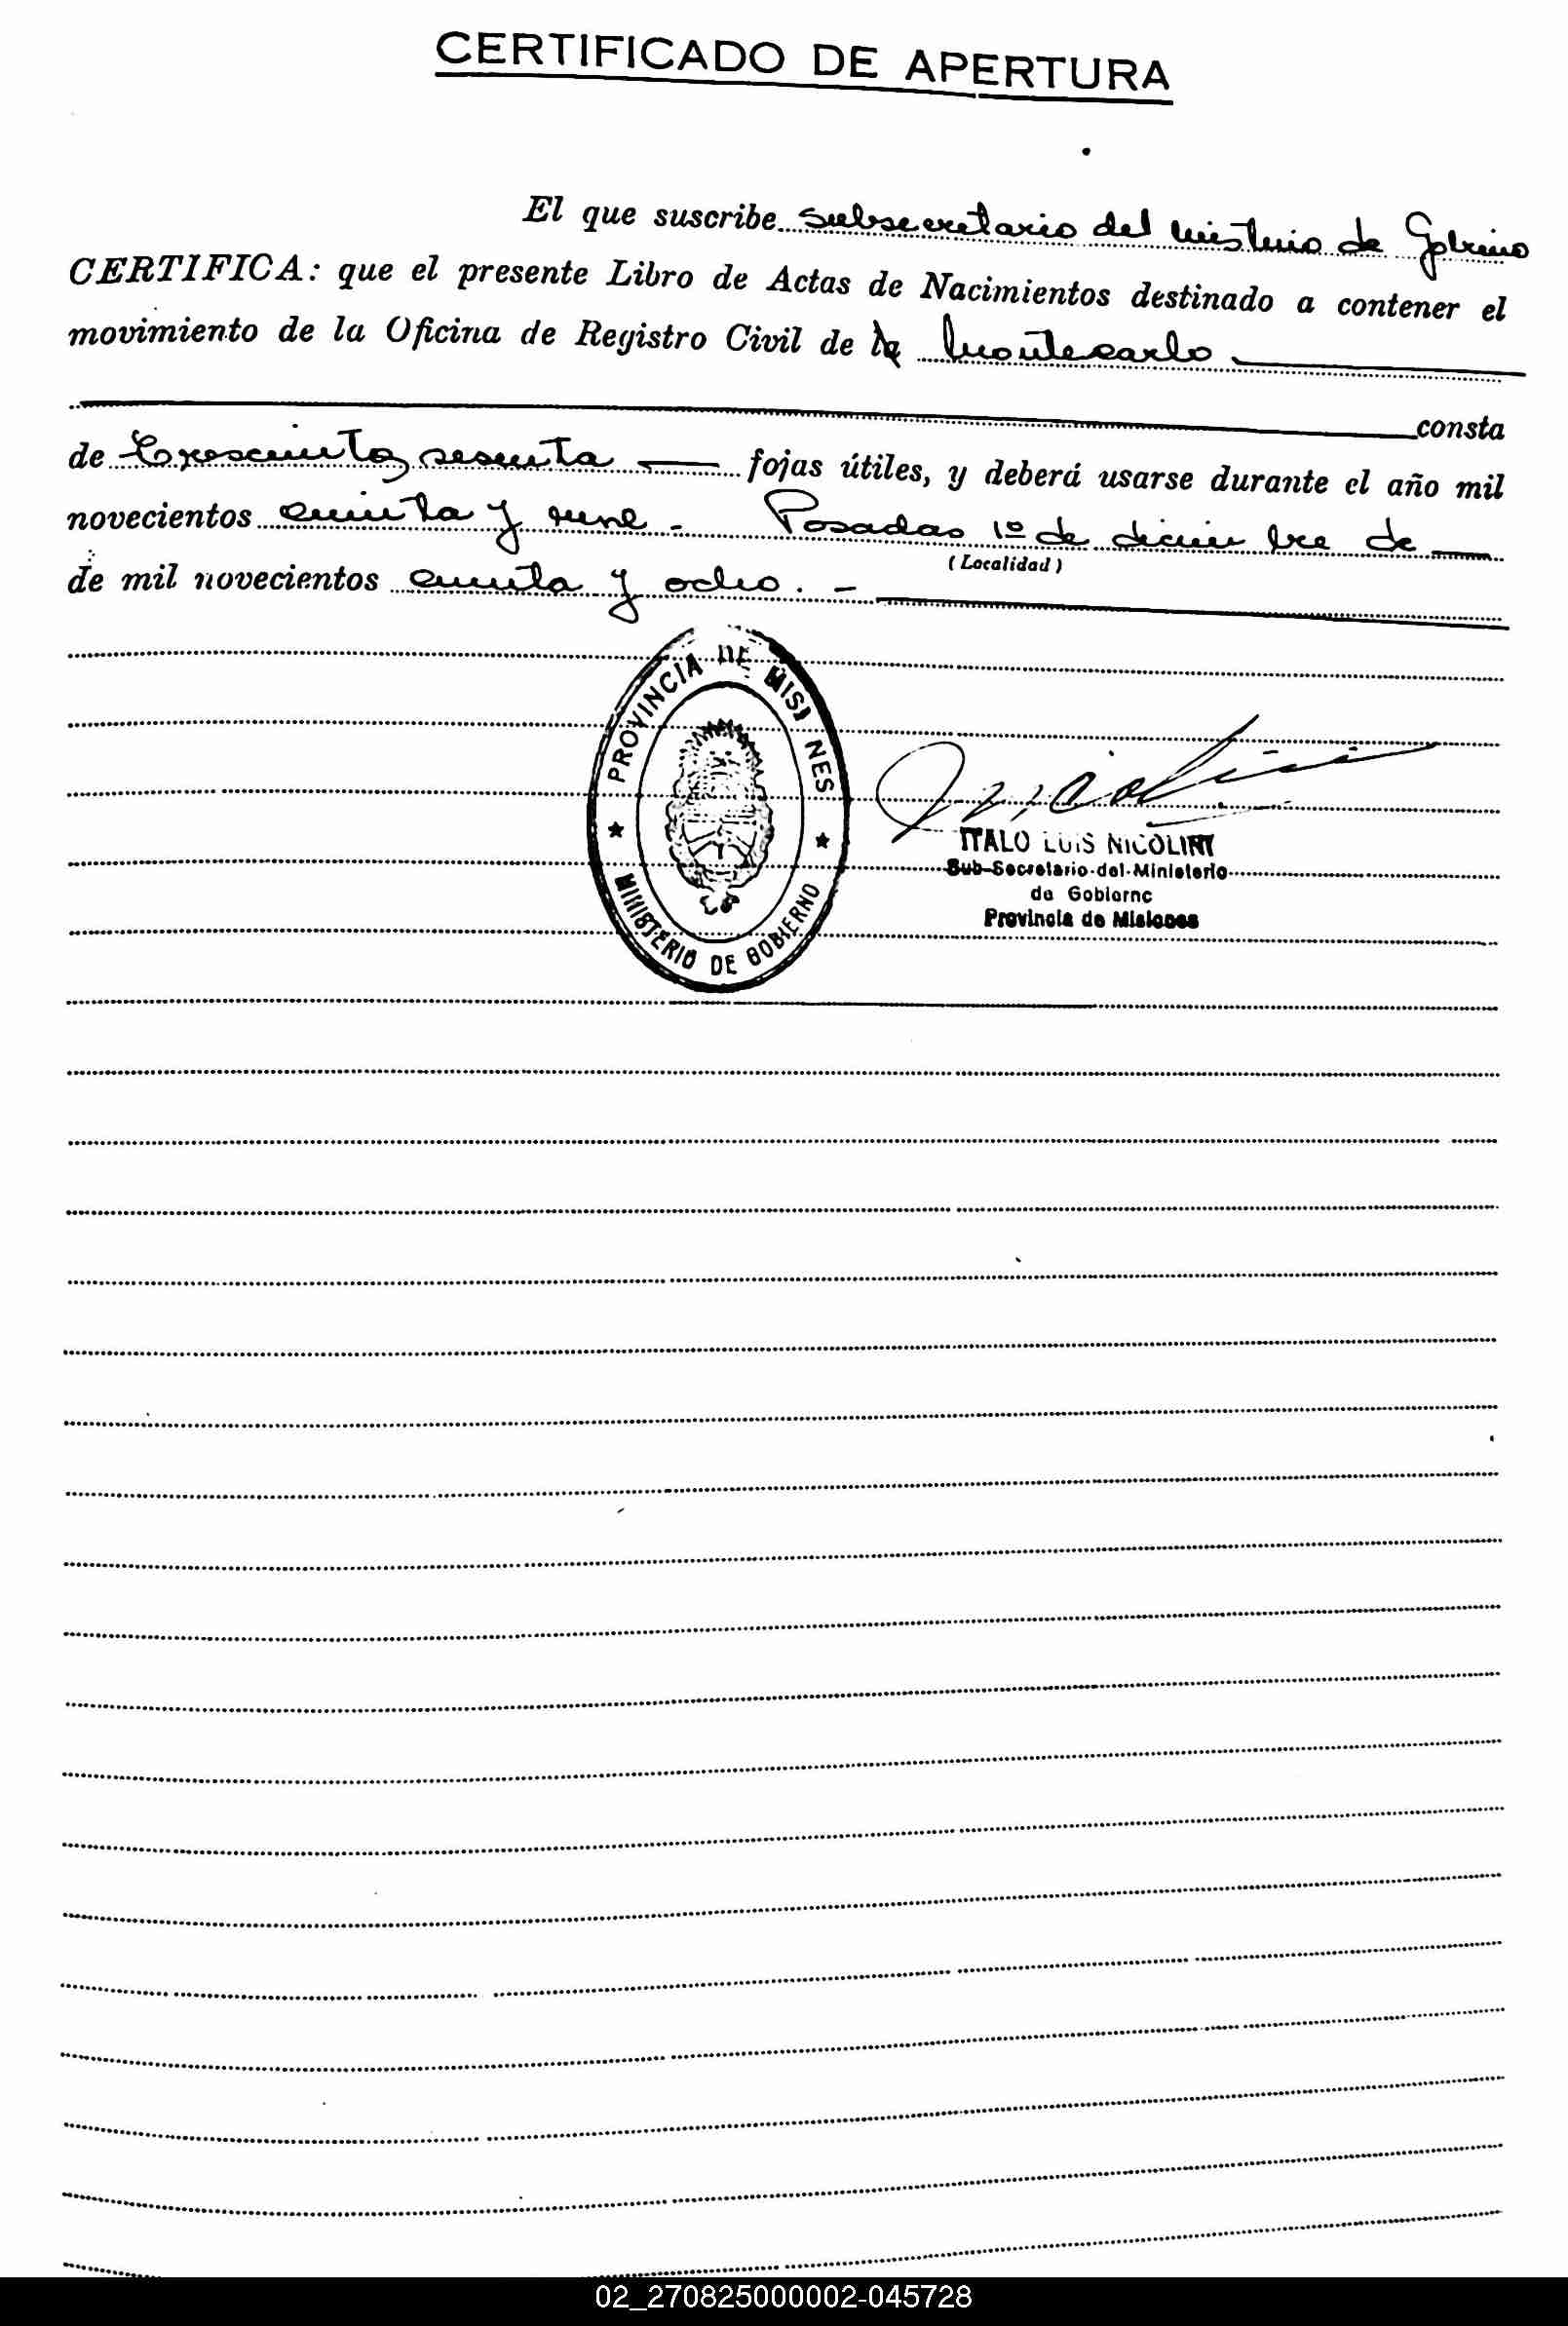 CERTIFICADO DE APERTURA
El que suscribe subsecretario del Ministerio de Gobierno
CERTIFICA: que el presente Libro de Actas de Nacimientos destinado a contener el
movimiento de la Oficina de Registro Civil de la Montecarlo
consta
de trescientos sesenta fojas útiles, y deberá usarse durante el año mil
novecientos cincuenta y nueve - Posadas 1º de diciembre de
(Localidad)
de mil novecientos cincuenta y ocho. -
PROVINCIA DE MISI NES
MINISTERIO DE GOBIERNO
ITALO LUIS NICOLINI
Sub-Secretario del Ministerio
de Gobierno
Provincia de Misiones
02_270825000002-045728